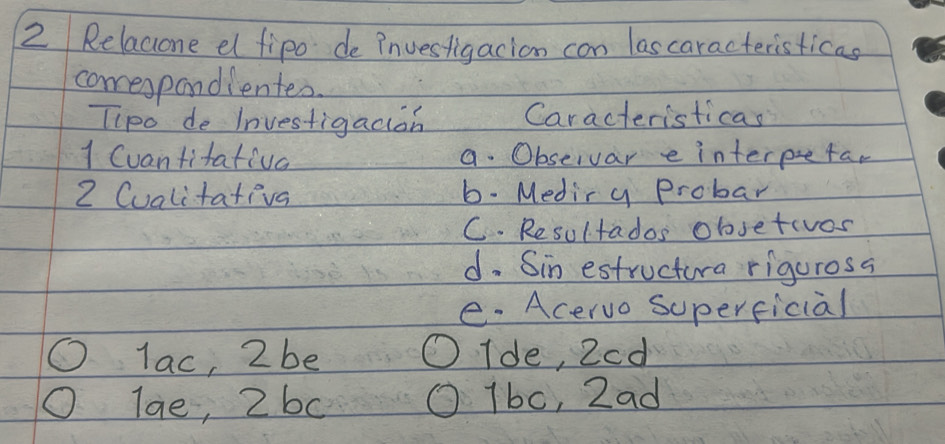 2 Relacione el tipo de investigacion con las caracteristicas
correspondientes.
Tipo de Investigación Caracteristicas
1 Cuantitativa a. Observar e interpretar
2 Cualitativa b. Medir y Probar
C. Resultados objetivos
d. Sin estructura rigurosa
e. Acervo Superficiàl
O 1ac, 2be O 1de, 2cd
O 1ae, 2bc O 1bc, 2ad